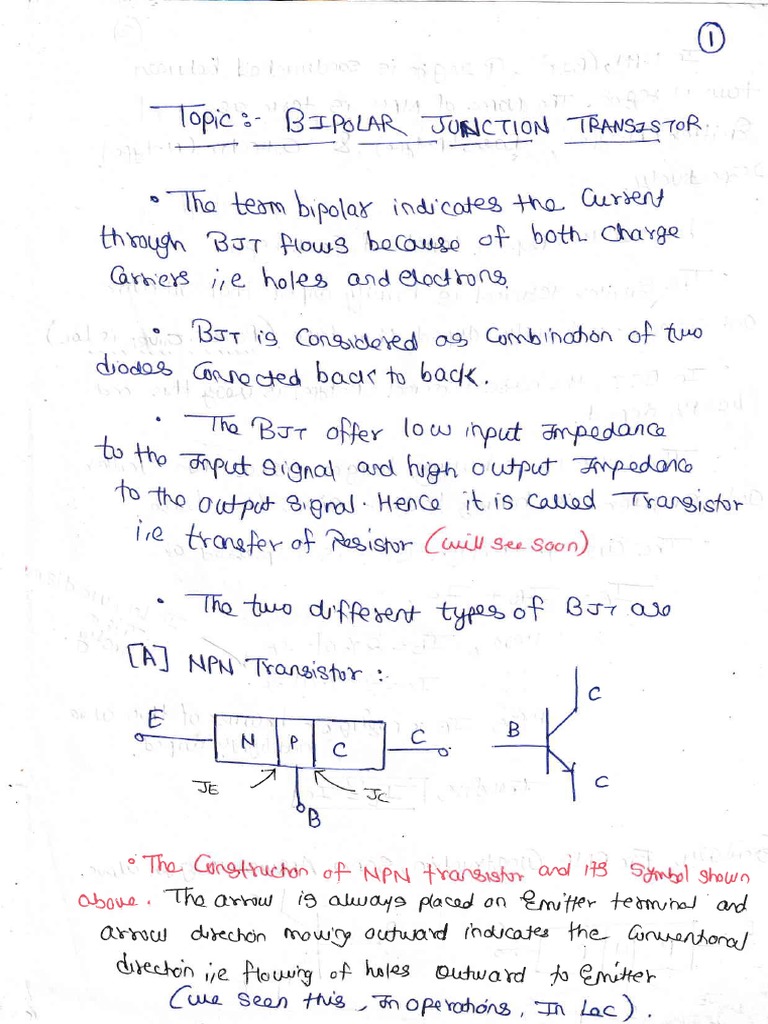 1
Topic:- BIPOLAR JUNCTION TRANSISTOR.
• The term bipolar indicates the Current
through BJT flows because of both Charge
Carriers i,e holes and electrons.
• BJT is Considered as Combination of two
diodes Connected back to back.
• The BJT offer low input Impedance
to the Input Signal and high output Impedance
to the output Signal. Hence it is called Transistor
i,e transfer of Resistor (will see soon)
• The two different types of BJT are
[A] NPN Transistor :
E N P C C
JE JC
B
B C
C
• The Construction of NPN transistor and its Symbol shown
above. The arrow is always placed on Emitter terminal and
arrow direction moving outward indicates the Conventional
direction i,e flowing of holes outward to Emitter
(we seen this, In operations, In Lec).